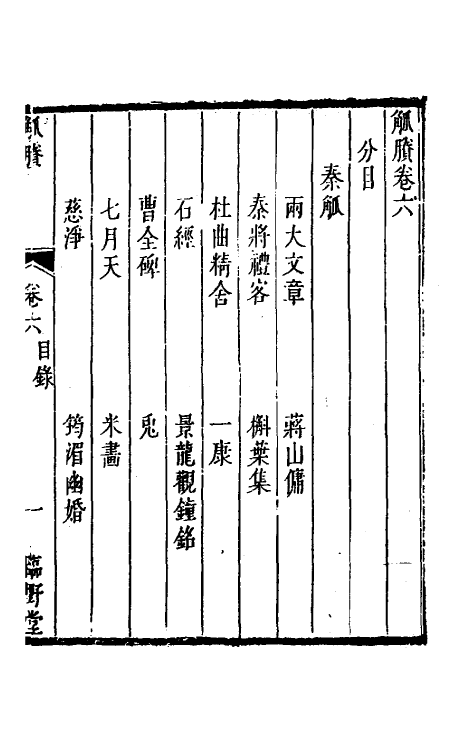 觚賸卷六
分目
秦觚
兩大文章　蔣山傭
泰將禮客　槲葉集
杜曲精舍　一康
石經　景龍觀鐘銘
曹全碑　兎
七月天　米畵
慈淨　筠湄幽婚
觚賸　卷六目錄　一　臨野堂